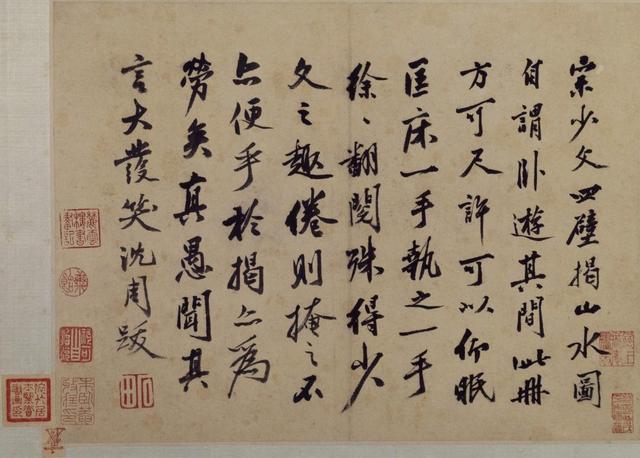 宗少文四壁揭山水圖
自謂卧遊其間此冊
方可尺許可以仰眠
匡床一手執之一手
徐〻翻閱殊得少
文之趣倦則掩之不
亦便乎於揭亦為
勞矣真愚聞其
言大發笑沈周跋
石田
朱卧菴收藏印